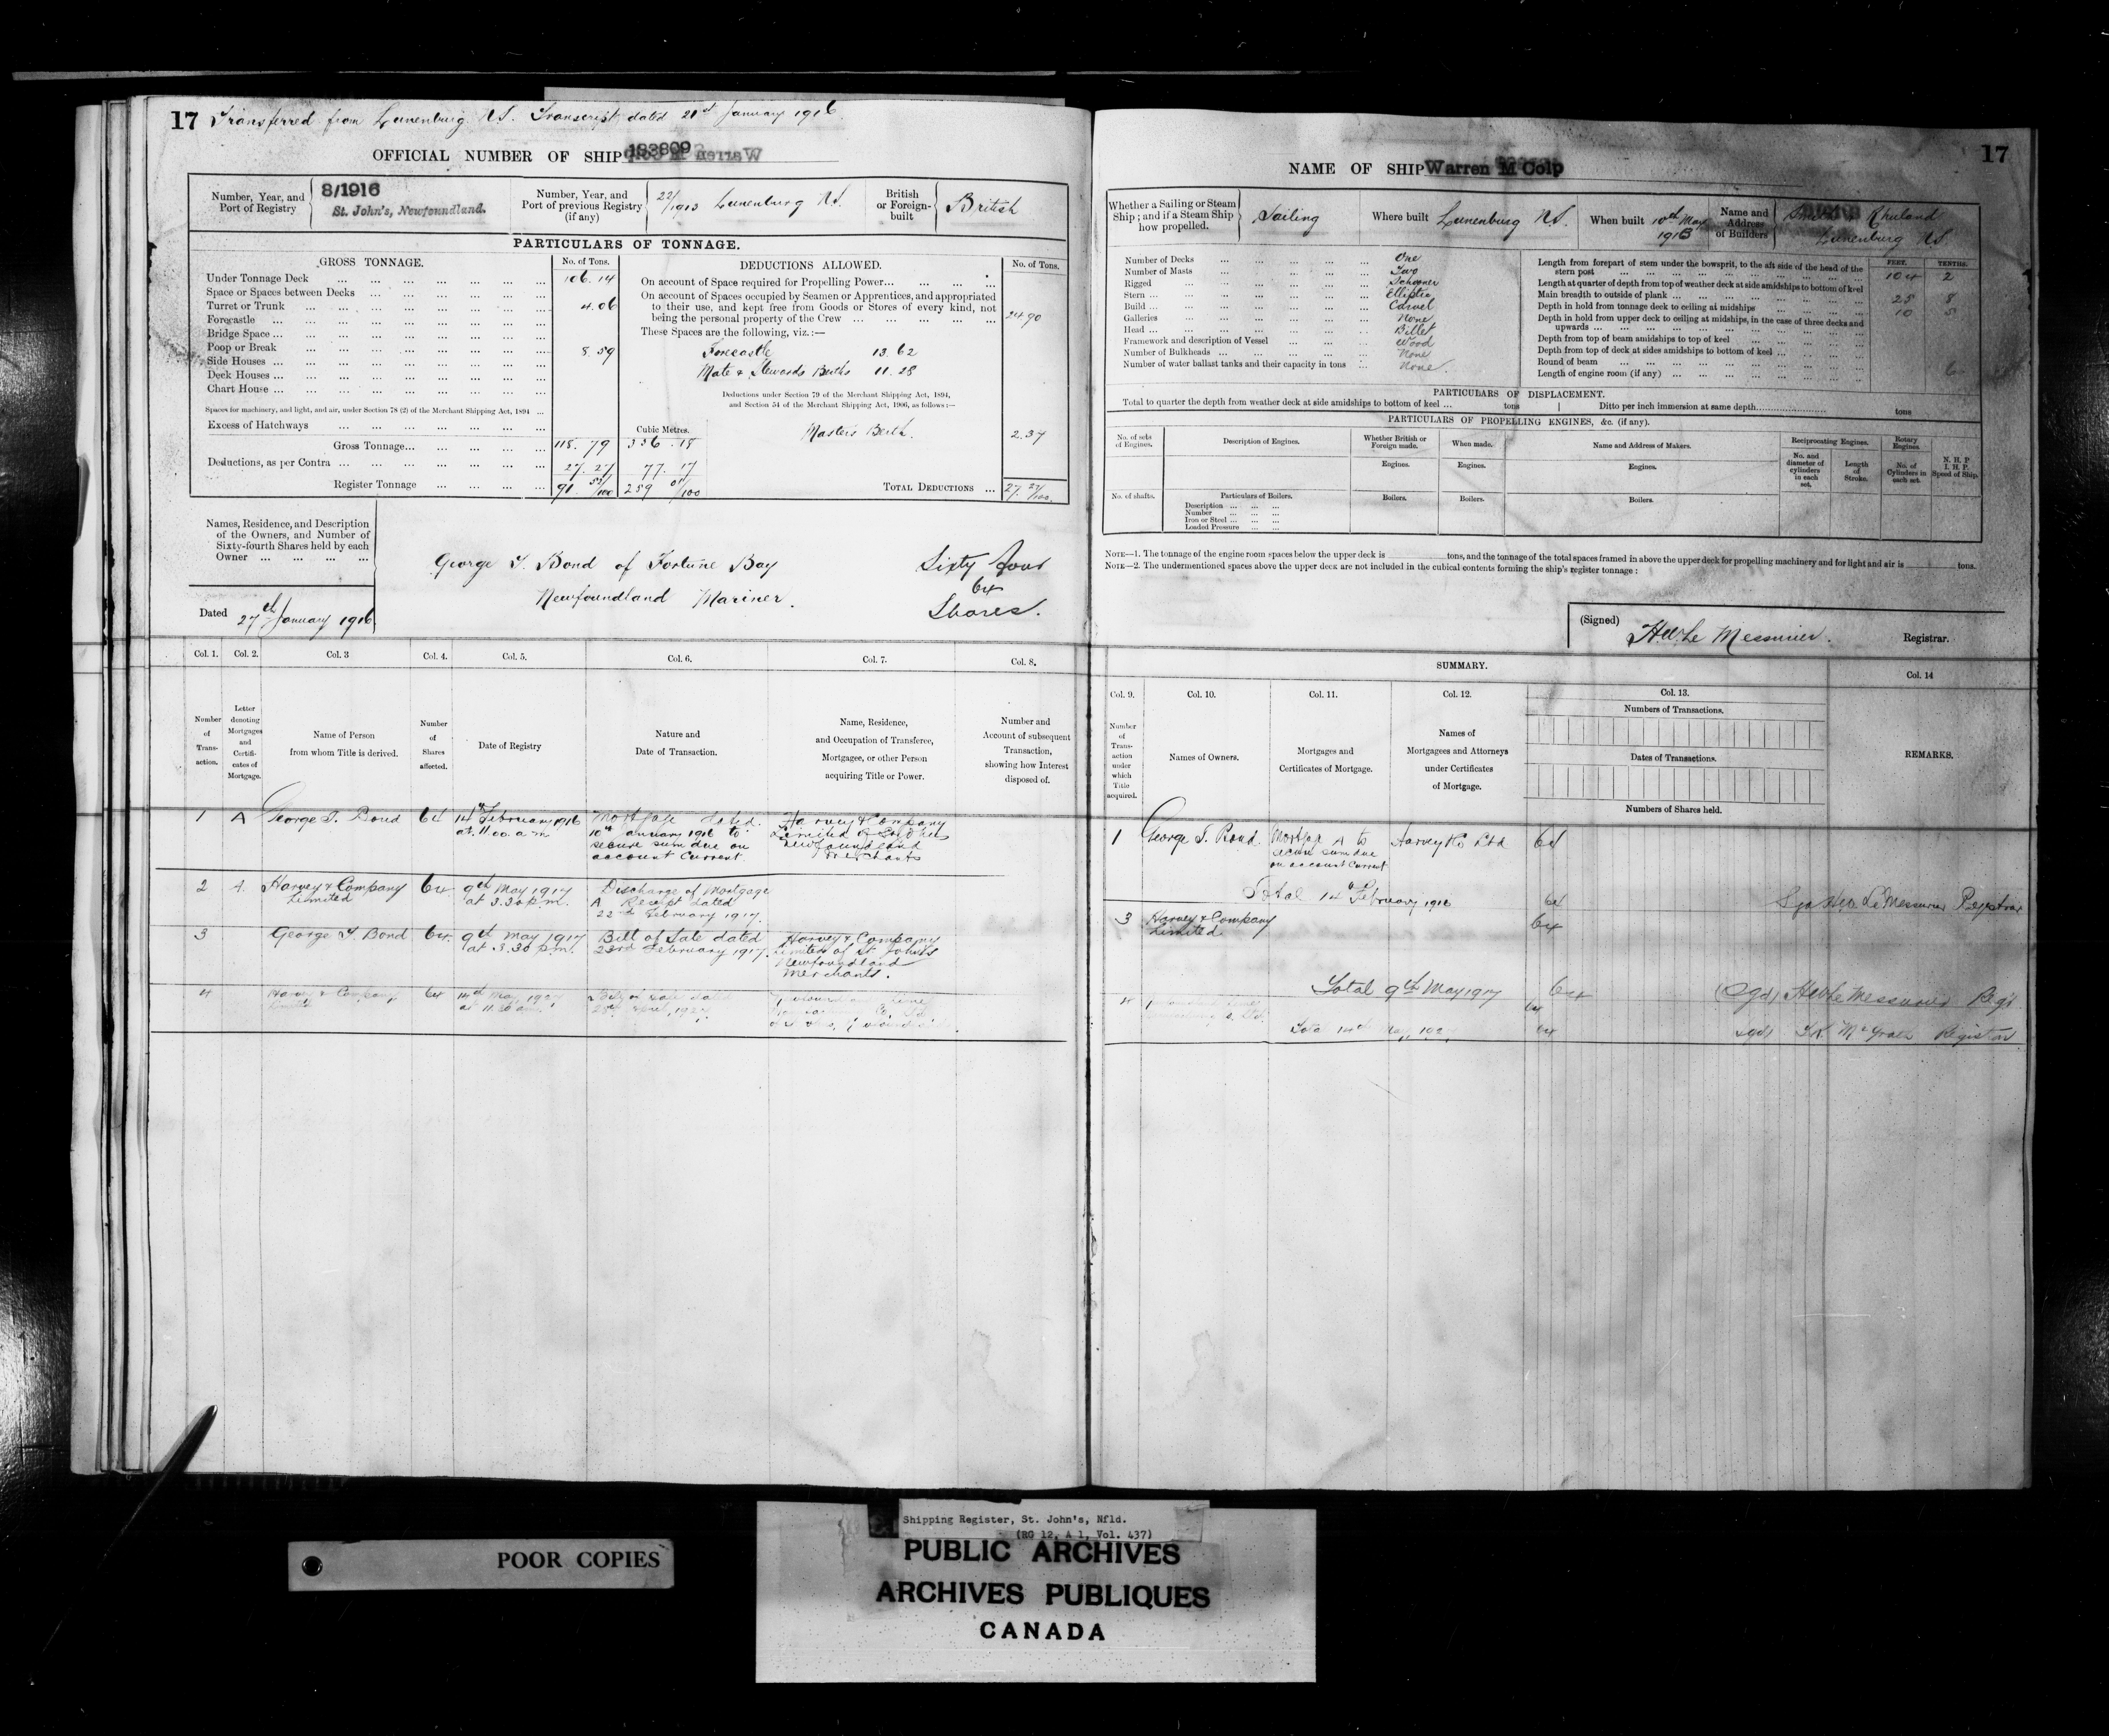 17 Transferred from Lunenburg N.S. Transcript dated 21st January 1916.
OFFICIAL NUMBER OF SHIP 133809
Number, Year, and Port of Registry
8/1916
St. John's, Newfoundland.
Number, Year, and Port of previous Registry (if any)
22/1913 Lunenburg N.S.
British or Foreign-built
British
PARTICULARS OF TONNAGE.
GROSS TONNAGE.
No. of Tons.
Under Tonnage Deck 106.14
Space or Spaces between Decks
Turret or Trunk 4.06
Forecastle
Bridge Space
Poop or Break 8.59
Side Houses
Deck Houses
Chart House
Spaces for machinery, and light, and air, under Section 78 (2) of the Merchant Shipping Act, 1894
Excess of Hatchways
Cubic Metres.
Gross Tonnage 118.79 336.18
Deductions, as per Contra 27.27 77.17
Register Tonnage 91 52/100 259 01/100
DEDUCTIONS ALLOWED.
No. of Tons.
On account of Space required for Propelling Power
On account of Spaces occupied by Seamen or Apprentices, and appropriated
to their use, and kept free from Goods or Stores of every kind, not
being the personal property of the Crew 24.90
These Spaces are the following, viz.:—
Forecastle 13.62
Mate & Stewards Berths 11.28
Deductions under Section 79 of the Merchant Shipping Act, 1894,
and Section 54 of the Merchant Shipping Act, 1906, as follows:—
Masters Berth. 2.37
TOTAL DEDUCTIONS 27 27/100
Names, Residence, and Description
of the Owners, and Number of
Sixty-fourth Shares held by each
Owner
George T. Bond of Fortune Bay
Newfoundland Mariner.
Sixty four
64
Shares.
Dated 27th January 1916
Col. 1. Col. 2. Col. 3 Col. 4. Col. 5. Col. 6. Col. 7. Col. 8.
Number of Transaction.
Letter denoting Mortgages and Certificates of Mortgage.
Name of Person from whom Title is derived.
Number of Shares affected.
Date of Registry
Nature and Date of Transaction.
Name, Residence, and Occupation of Transferee, Mortgagee, or other Person acquiring Title or Power.
Number and Account of subsequent Transaction, showing how Interest disposed of.
1 A George T. Bond 64 14th February 1916 at 11.00 a.m Mortgage dated 10th January 1916 to secure sum due on account Current. Harvey & Company Limited of St John's Newfoundland Merchants
2 A. Harvey & Company Limited 64 9th May 1917 at 3.30 p.m. Discharge of Mortgage A Receipt dated 22nd February 1917.
3 George T. Bond 64. 9th May 1917 at 3.30 p.m. Bill of Sale dated 23rd February 1917. Harvey & Company Limited of St. John's Newfoundland Merchants.
4 Harvey & Company Limited 64 14th May, 1927 at 11.30 a.m. Bill of Sale dated April, 1927
17
NAME OF SHIP Warren M Colp
Whether a Sailing or Steam Ship; and if a Steam Ship how propelled.
Sailing
Where built Lunenburg N.S.
When built 10th May 1913
Name and Address of Builders
Smith & Rhuland
Lunenburg N.S.
Number of Decks One
Number of Masts Two
Rigged Schooner
Stern Elliptic
Build Carvel
Galleries None
Head Billet
Framework and description of Vessel Wood
Number of Bulkheads None
Number of water ballast tanks and their capacity in tons None.
FEET. TENTHS.
Length from forepart of stem under the bowsprit, to the aft side of the head of the stern post 104 2
Length at quarter of depth from top of weather deck at side amidships to bottom of keel
Main breadth to outside of plank 25 8
Depth in hold from tonnage deck to ceiling at midships 10 5
Depth in hold from upper deck to ceiling at midships, in the case of three decks and upwards
Depth from top of beam amidships to top of keel
Depth from top of deck at sides amidships to bottom of keel
Round of beam 6
Length of engine room (if any)
PARTICULARS OF DISPLACEMENT.
Total to quarter the depth from weather deck at side amidships to bottom of keel ... tons | Ditto per inch immersion at same depth tons
PARTICULARS OF PROPELLING ENGINES, &c. (if any).
No. of sets of Engines.
Description of Engines.
Whether British or Foreign made.
When made.
Name and Address of Makers.
Reciprocating Engines.
Rotary Engines.
N. H. P. I. H. P. Speed of Ship.
Engines. Engines. Engines.
No. and diameter of cylinders in each set.
Length of Stroke.
No. of Cylinders in each set.
No. of shafts.
Particulars of Boilers.
Boilers. Boilers. Boilers.
Description
Number
Iron or Steel
Loaded Pressure
NOTE—1. The tonnage of the engine room spaces below the upper deck is tons, and the tonnage of the total spaces framed in above the upper deck for propelling machinery and for light and air is tons.
NOTE—2. The undermentioned spaces above the upper deck are not included in the cubical contents forming the ship's register tonnage:
(Signed) H W Le Messurier. Registrar.
SUMMARY.
Col. 9. Col. 10. Col. 11. Col. 12. Col. 13. Col. 14
Number of Transaction under which Title acquired.
Names of Owners.
Mortgages and Certificates of Mortgage.
Names of Mortgagees and Attorneys under Certificates of Mortgage.
Numbers of Transactions.
Dates of Transactions.
Numbers of Shares held.
REMARKS.
1 George T. Bond. Mortgage A to secure sum due on account Current Harvey & Co Ltd 64
Total 14th February 1916 64 Sgd H W Le Messurier Registrar
3 Harvey & Company Limited. 64
Total 9th May 1917 64 (Sgd) H W Le Messurier Regr
4 64
Total 14th May, 1927 64 sgd) McGrath Registrar
POOR COPIES
Shipping Register, St. John's, Nfld.
(RG 12, A 1, Vol. 437)
PUBLIC ARCHIVES
ARCHIVES PUBLIQUES
CANADA